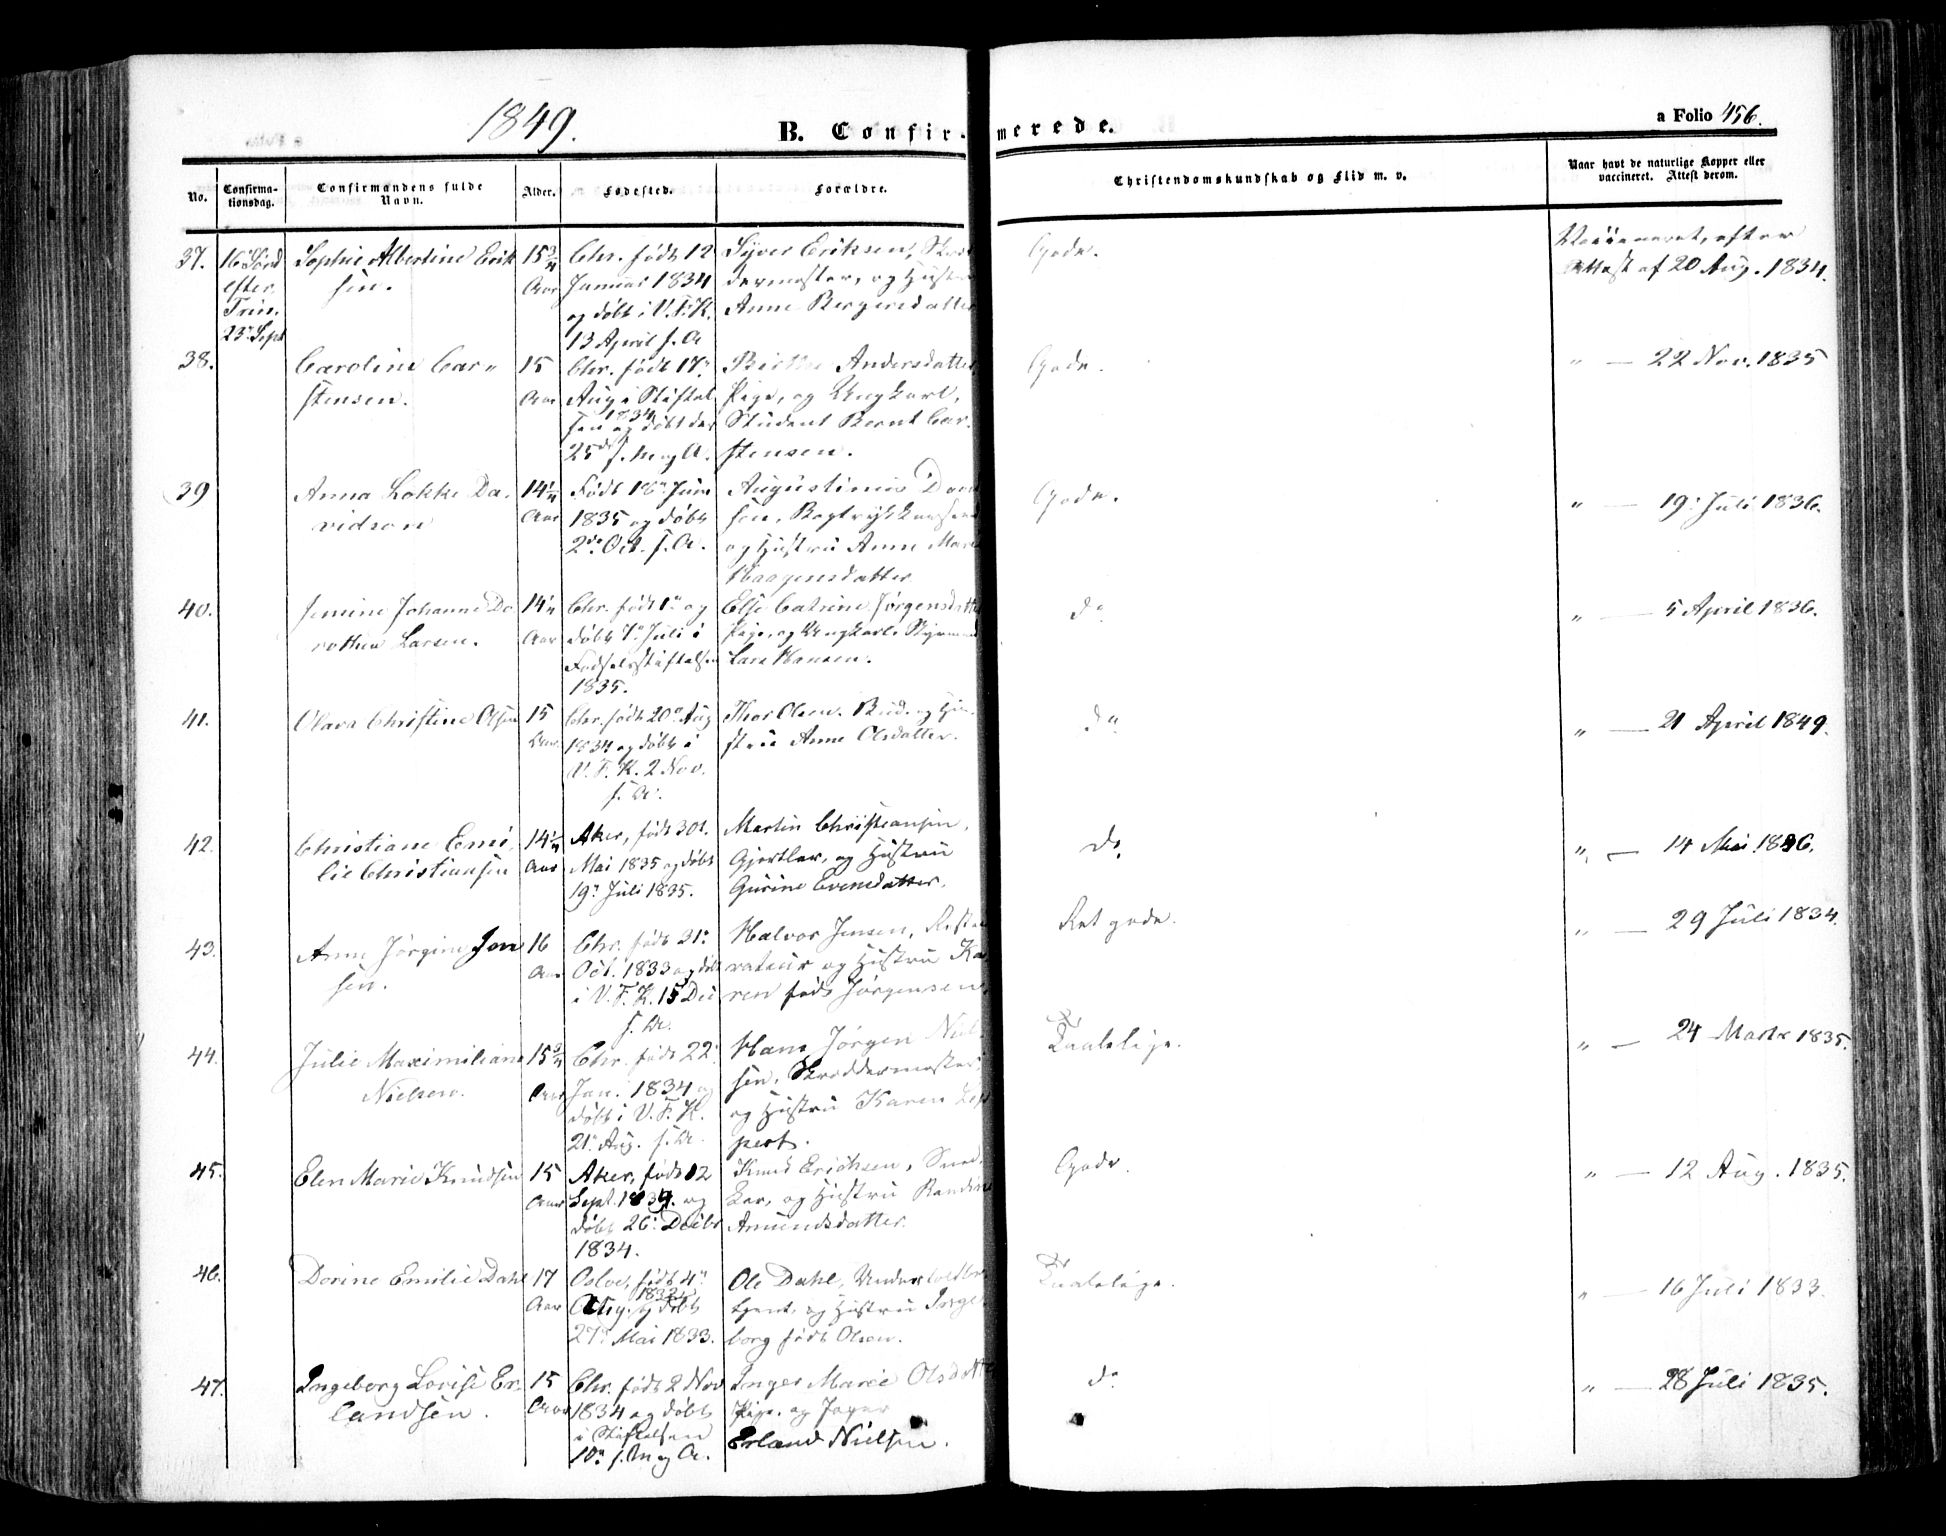 1849.
B. Confir-merede.
a Folio 456.
No.
Confirma-
tionsdag.
Confirmandens fulde
Navn.
Alder.
Fødested.
Forældre.
Christendomskundskab og Flid m. v.
Naar havt de naturlige Kopper eller
vaccineret. Attest derom.
37.
16 Sønd
efter
Trin.
23 Sept
Sophie Albertine Erik
sen.
15 3/4
Aar
Chr. født 12
Januar 1834
og døbt i V. F. K.
13 April s. A
Syver Eriksen, Skræd
dermester, og Hustru
Anne Bergersdatter
Gode.
Vaccineret, efter
Attest af 20 Aug. 1834.
38.
Caroline Car-
stensen.
15
Aar
Chr. født 17
Aug i Stiftel
1834
sen og døbt der
25de s. M og A.
Andersdatter
Pige, og Ungkarl,
Student Bernt Car-
stensen.
Gode.
" — 22 Nov. 1835
39
Anna Løkke Da-
vidson
14 1/4
Aar
Født 18 Juni
1835 og døbt
2de Oct. s. A.
Augustinus David
sen, Bogtrykker
og Hustru Anne Marie
Haagensdatter
Gode.
" — 19 Juli 1836.
40.
Jemine Johanne Do
rothea Larsen.
14 1/4
Aar
Chr. født 1 og
døbt 7 Juli i
Fødselsstiftelsen
1835.
Else Catrine Jørgensdatter
Pige, og Ungkarl, Styrmand
Lars Hansen.
do
" — 5 April 1836.
41.
Olava Christine Olsen
15
Aar
Chr. født 20 Aug
1834 og døbt i
V. F. K. 2 Nov.
s. A.
Thor Olsen, Bud, og Hu-
stru Anne Olsdatter.
do
" — 21 April 1849.
42.
Christiane Emi-
lie Christiansen
14 1/4
Aar
Aker, født 30t.
Mai 1835 og døbt
19 Juli 1835.
Martin Christiansen,
Gjertler, og Hustru
Gurine Evensdatter.
do
" — 14 Mai 1836.
43.
Anne Jørgine Jen
sen.
16
Aar
Chr. født 31
Oct. 1833 og døbt
i V. F. K. 15 Dec
s. A.
Halvor Jensen, Restau
rateur og Hustru Ka-
ren født Jørgensen.
Ret gode.
" — 29 Juli 1834.
44.
Julie Maximiliane
Nielsen.
15 3/4
Aar
Chr. født 22
Jan. 1834 og
døbt i V. F. K.
21 Aug. s. A.
Hans Jørgen Niel-
sen, Skræddermester,
og Hustru Karen Lip
pert.
Taalelige.
" — 24 Marts 1835.
45.
Elen Marie Knudsen
15
Aar
Aker, født 12
Sept. 1834. og
døbt 26 Decbr
1834.
Knud Erichsen, Sned-
ker, og Hustru Randine
Amundsdatter.
Gode.
" — 12 Aug. 1835.
46.
Dorine Emilie Dahl
17
Aar
Oslo, født 4
1832
Aug. og døbt
27 Mai 1833.
Ole Dahl, Undertoldbe-
tjent, og Hustru Inge-
borg født Olsen.
Taalelige.
" — 16 Juli 1833.
47.
Ingeborg Lovise Er-
landsen.
15
Aar
Chr. født 2 Nov
1834 og døbt
i Stiftelsen
10 s. M og A.
Inger Marie Olsdatter
Pige, og Jæger
Erland Nielsen.
do
" — 28 Juli 1835.